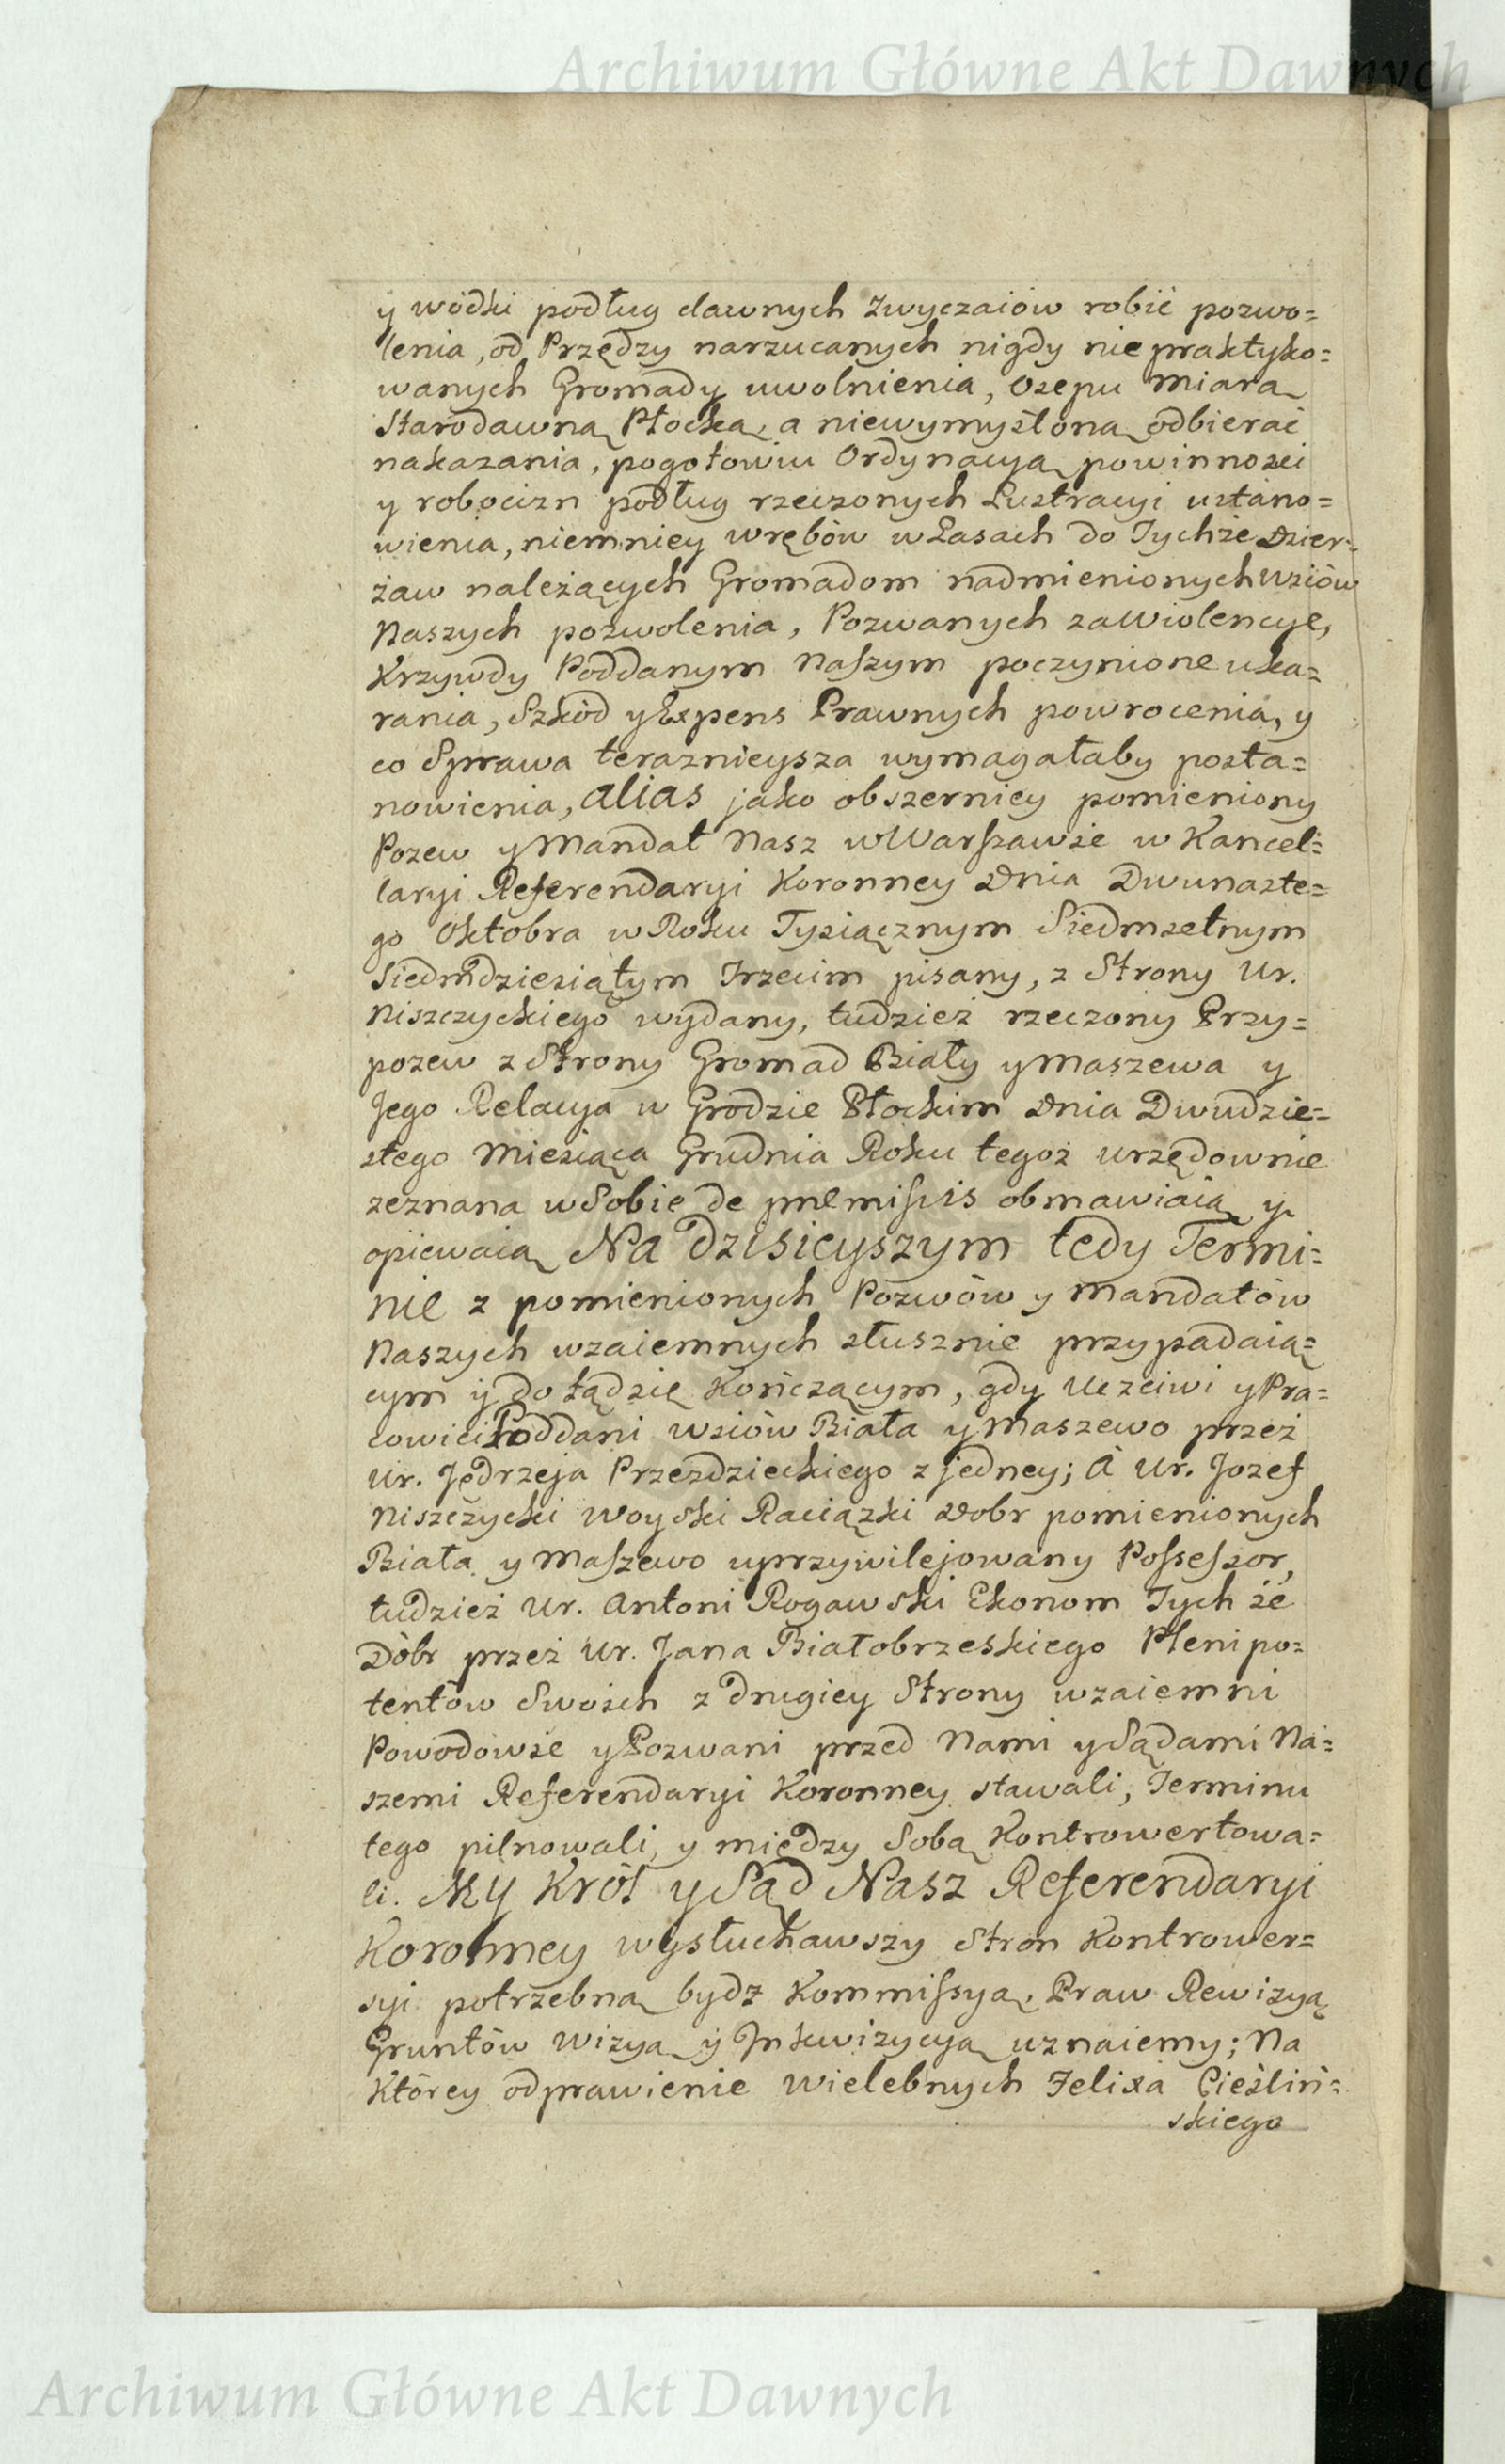 Archiwum Główne Akt Dawnych
y wódki podług dawnych zwyczaiów robić pozwo=
lenia, od Przędzy narzucanych nigdy nie praktyko=
wanych Gromady uwolnienia, Osepu miarą
Starodawną Płocką, a niewymyśloną odbierać
nakazania, pogotowiu Ordynacyą powinności
y robocizn podług rzeczonych Lustracyi ustano=
wienia, niemniey wrębów w Lasach do Tychże Dzier=
żaw należących Gromadom nadmienionych wsiów
Naszych pozwolenia, Pozwanych za wiolencye,
Krzywdy Poddanym Naszym poczynione uka=
rania, Szkód y Expens Prawnych powrocenia, y
co Sprawa teraznieysza wymagałaby posta=
nowienia, alias jako obszerniey pomieniony
Pozew y Mandat Nasz w Warszawie w Kancel=
laryi Referendaryi Koronney Dnia Dwunaste=
go Oktobra w Roku Tysiącznym Siedmsetnym
Siedmdziesiątym Trzecim pisany, z Strony Ur.
Niszczyckiego wydany, tudzież rzeczony Przy=
pozew z Strony Gromad Biały y Maszewa y
Jego Relacya w Grodzie Płockim Dnia Dwudzie=
stego Miesiąca Grudnia Roku tegoż urzędownie
zeznana w Sobie de premissis obmawiaią y
opiewaią Na Dzisieyszym tedy Termi=
nie z pomienionych Pozwów y Mandatów
Naszych wzaiemnych słusznie przypadaią=
cym y do tądzię Kończącym, gdy Uczciwi y Pra=
cowici Poddani wsiów Biała y Maszewo przez
Ur. Jędrzeja Przezdzieckiego z jedney; A Ur. Jozef
Niszczycki Woyski Raciązki Dobr pomienionych
Biała y Maszewo uprzywilejowany Possessor,
tudzież Ur. Antoni Rogawski Ekonom Tych że
Dóbr przez Ur. Jana Białobrzeskiego Plenipo=
tentów Swoich z drugiey Strony wzaiemni
Powodowie y Pozwani przed Nami y Sądami Na=
szemi Referendaryi Koronney stawali, Terminu
tego pilnowali, y między Sobą Kontrowertowa=
li. My Król y Sąd Nasz Referendaryi
Koronney wysłuchawszy Stron Kontrower=
syi potrzebną bydz Kommissyą, Praw Rewizyą
Gruntów Wizyą y Inkwizycyą uznaiemy; Na
Którey odprawienie Wielebnych Felixa Cieśliń=
skiego
Archiwum Główne Akt Dawnych